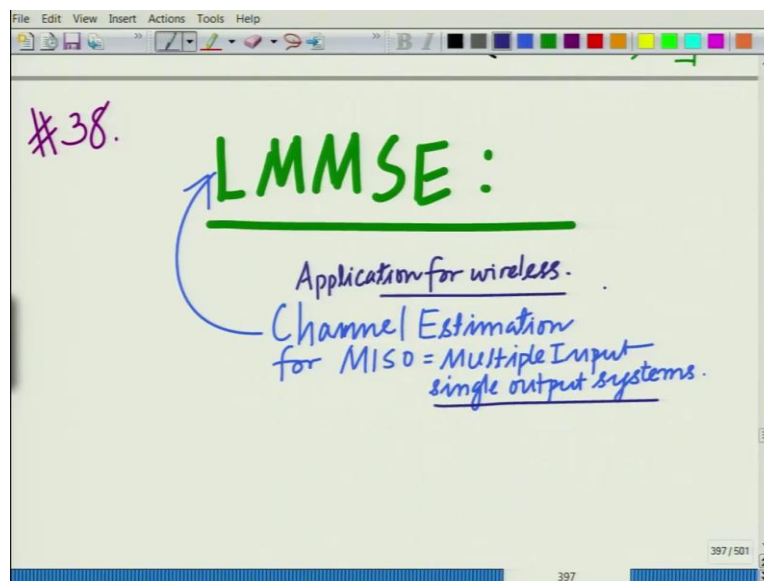 File Edit View Insert Actions Tools Help
B I
#38.
LMMSE:
Application for wireless.
Channel Estimation
for MISO = Multiple Input
single output systems.
397/501
397